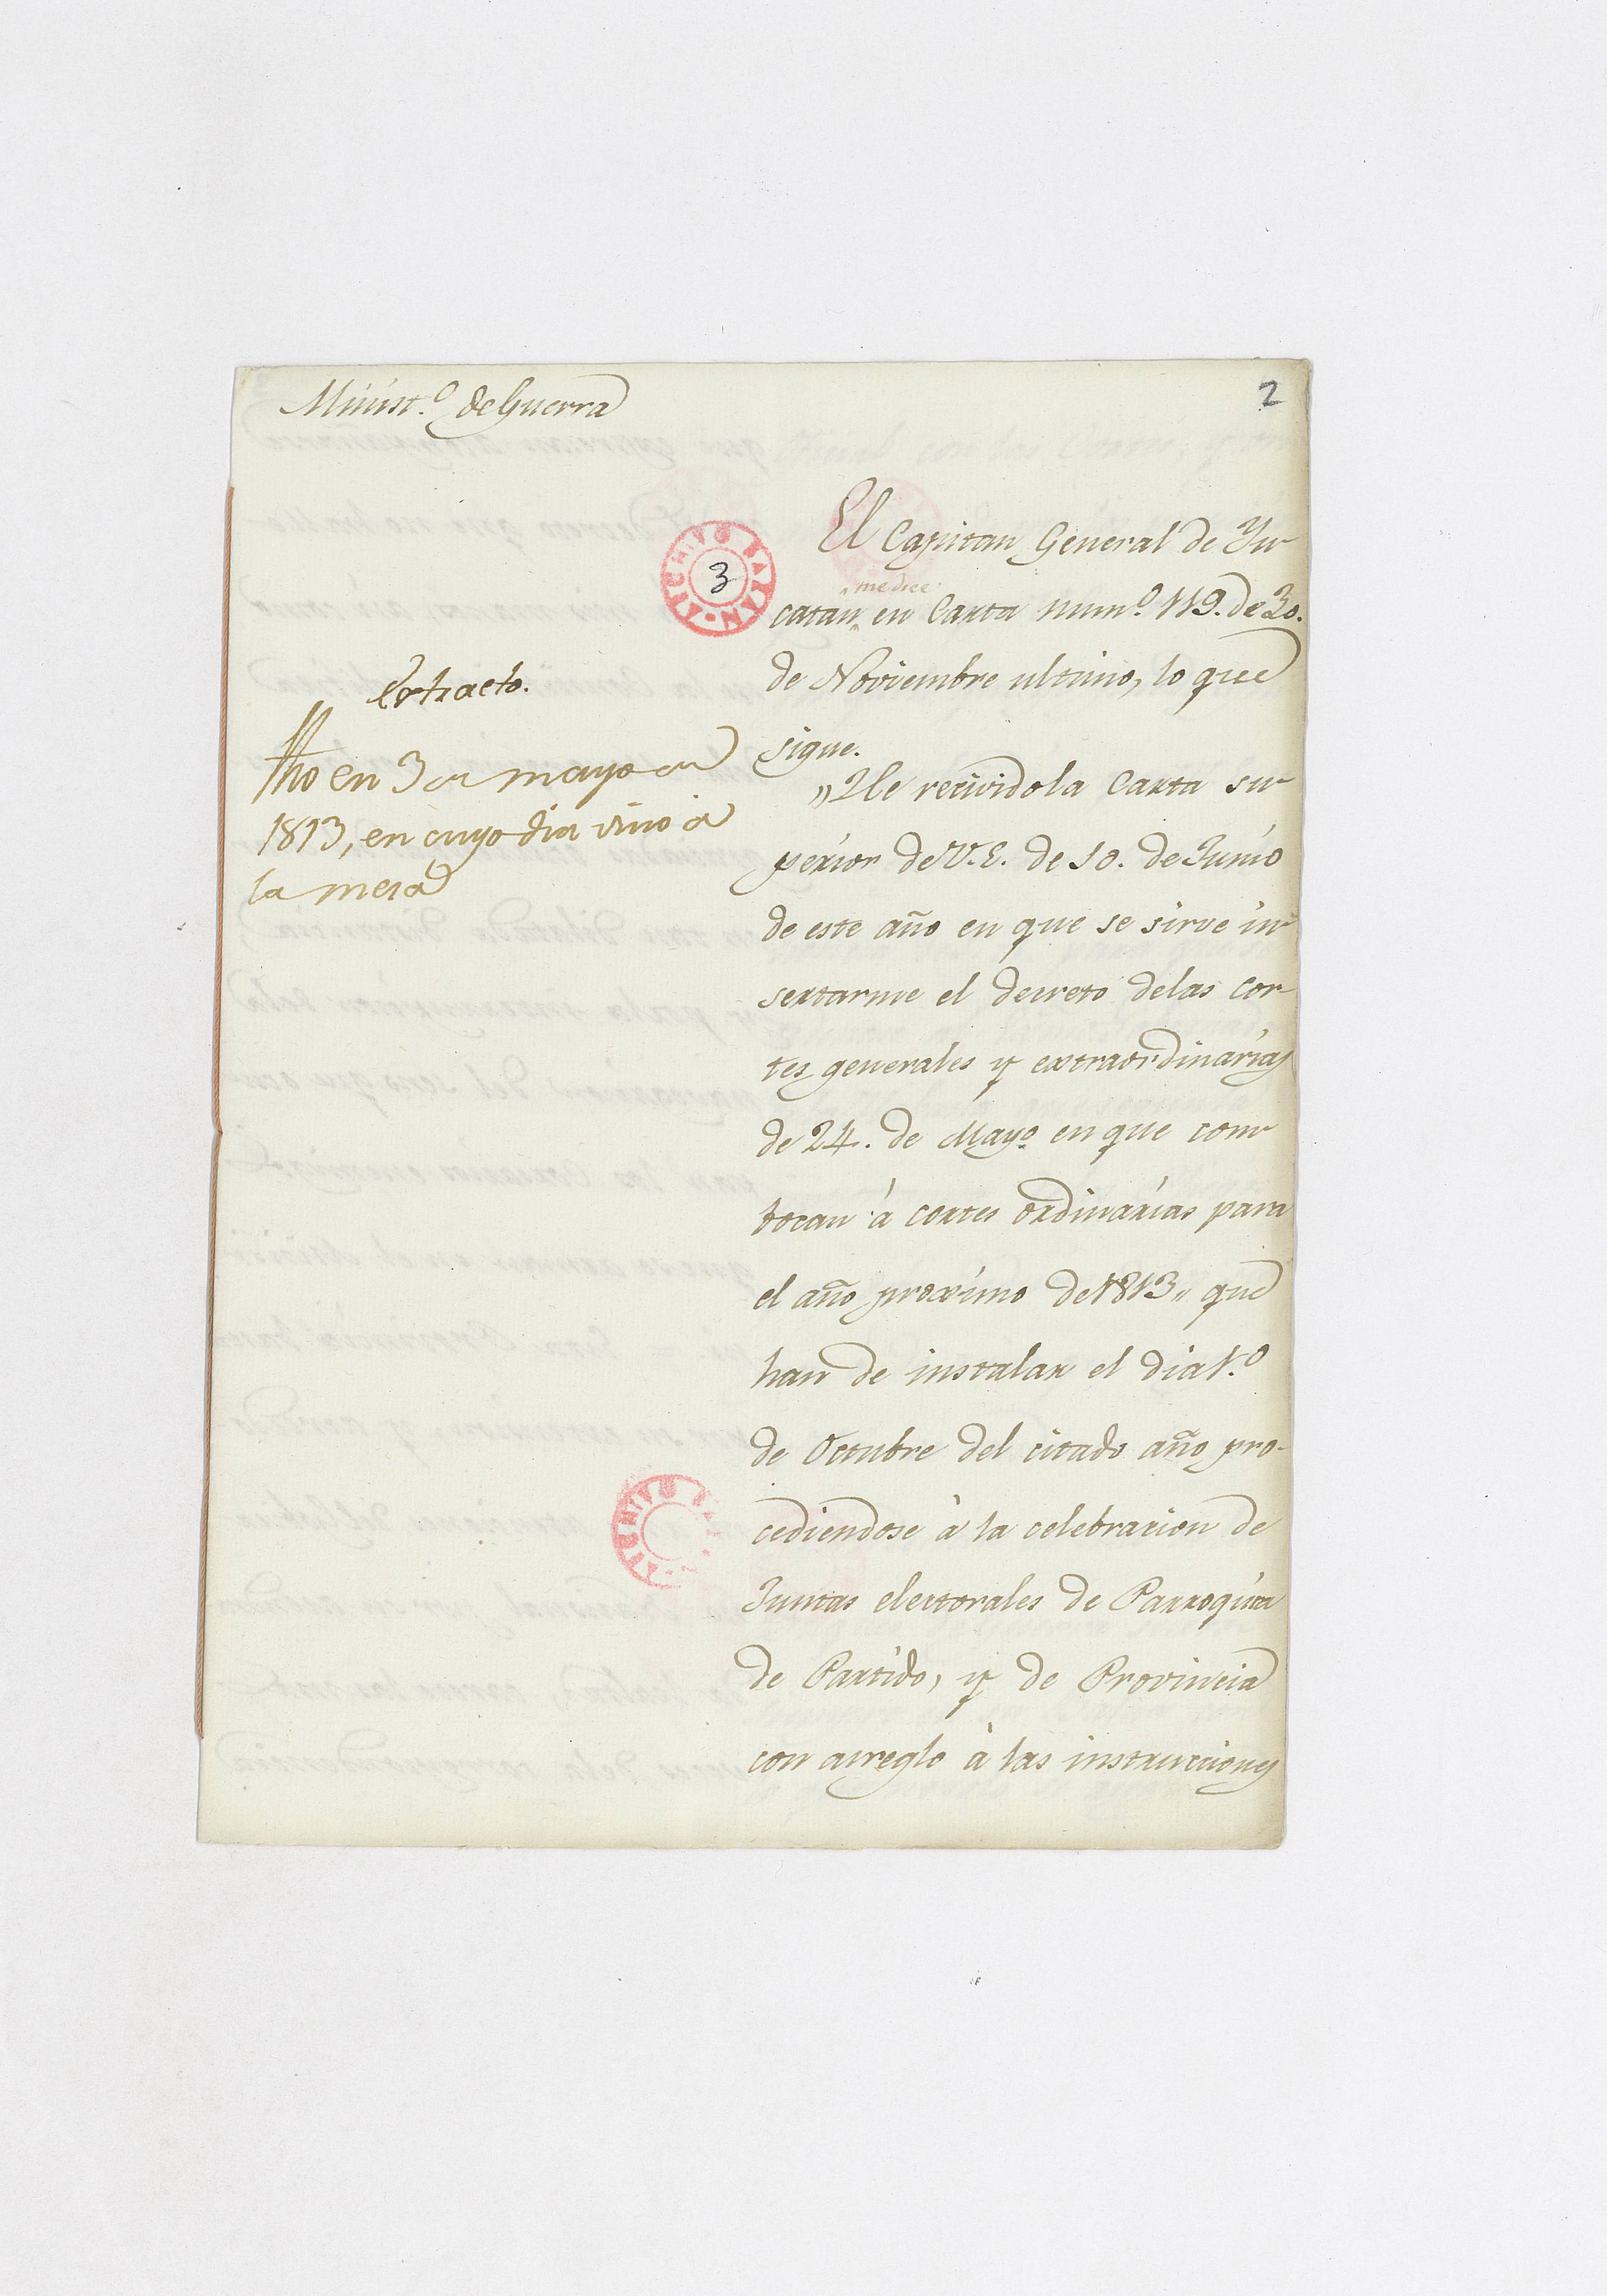 Minist.º de Guerra
2
ARCHIVO BAZAN
3
Extracto.
fho en 3 de mayo de
1813, en cuyo dia vino a
la mesa
El Capitan General de Yu
me dice
catan en Carta num.º 119. de 30.
de Noviembre ultimo, lo que
sigue.
"He recivido la Carta su
perior de V.E. de 10. de Junio
de este año en que se sirve in
sertarme el decreto de las Cor-
tes generales y extraordinarias
de 24. de Mayo en que com
bocan á cortes ordinarias para
el año proximo de 1813,, que
han de instalar el dia 1.º
de Octubre del citado año pro-
cediendose à la celebracion de
Juntas electorales de Parroquia
de Partido, y de Provincia
con arreglo à las instrucciones
ARCHIVO